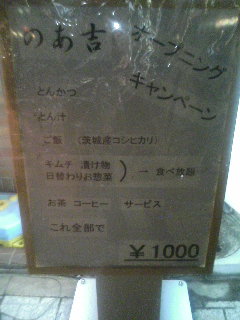 のあ吉
オープニング
キャンペーン
とんかつ
とん汁
ご飯 (茨城産コシヒカリ)
キムチ 漬け物
日替わりお惣菜 ) → 食べ放題
お茶 コーヒー サービス
これ全部で
¥1000